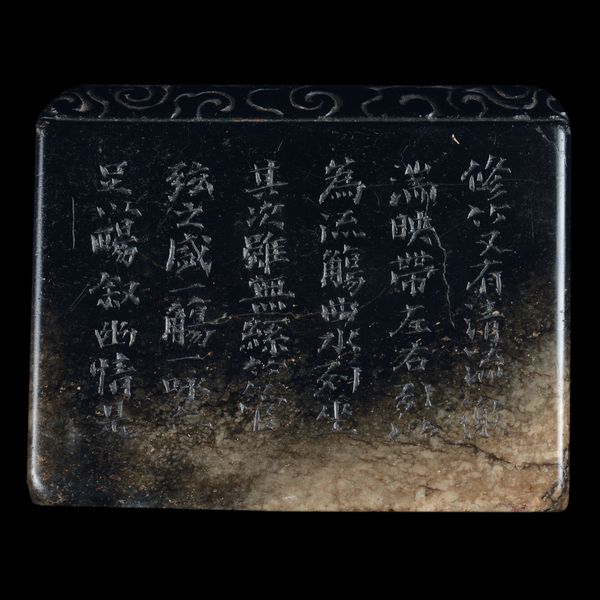 修竹又有清流激
湍映帶左右引以
為流觴曲水列坐
其次雖無絲竹管
絃之盛一觴一詠亦
足以暢敘幽情是